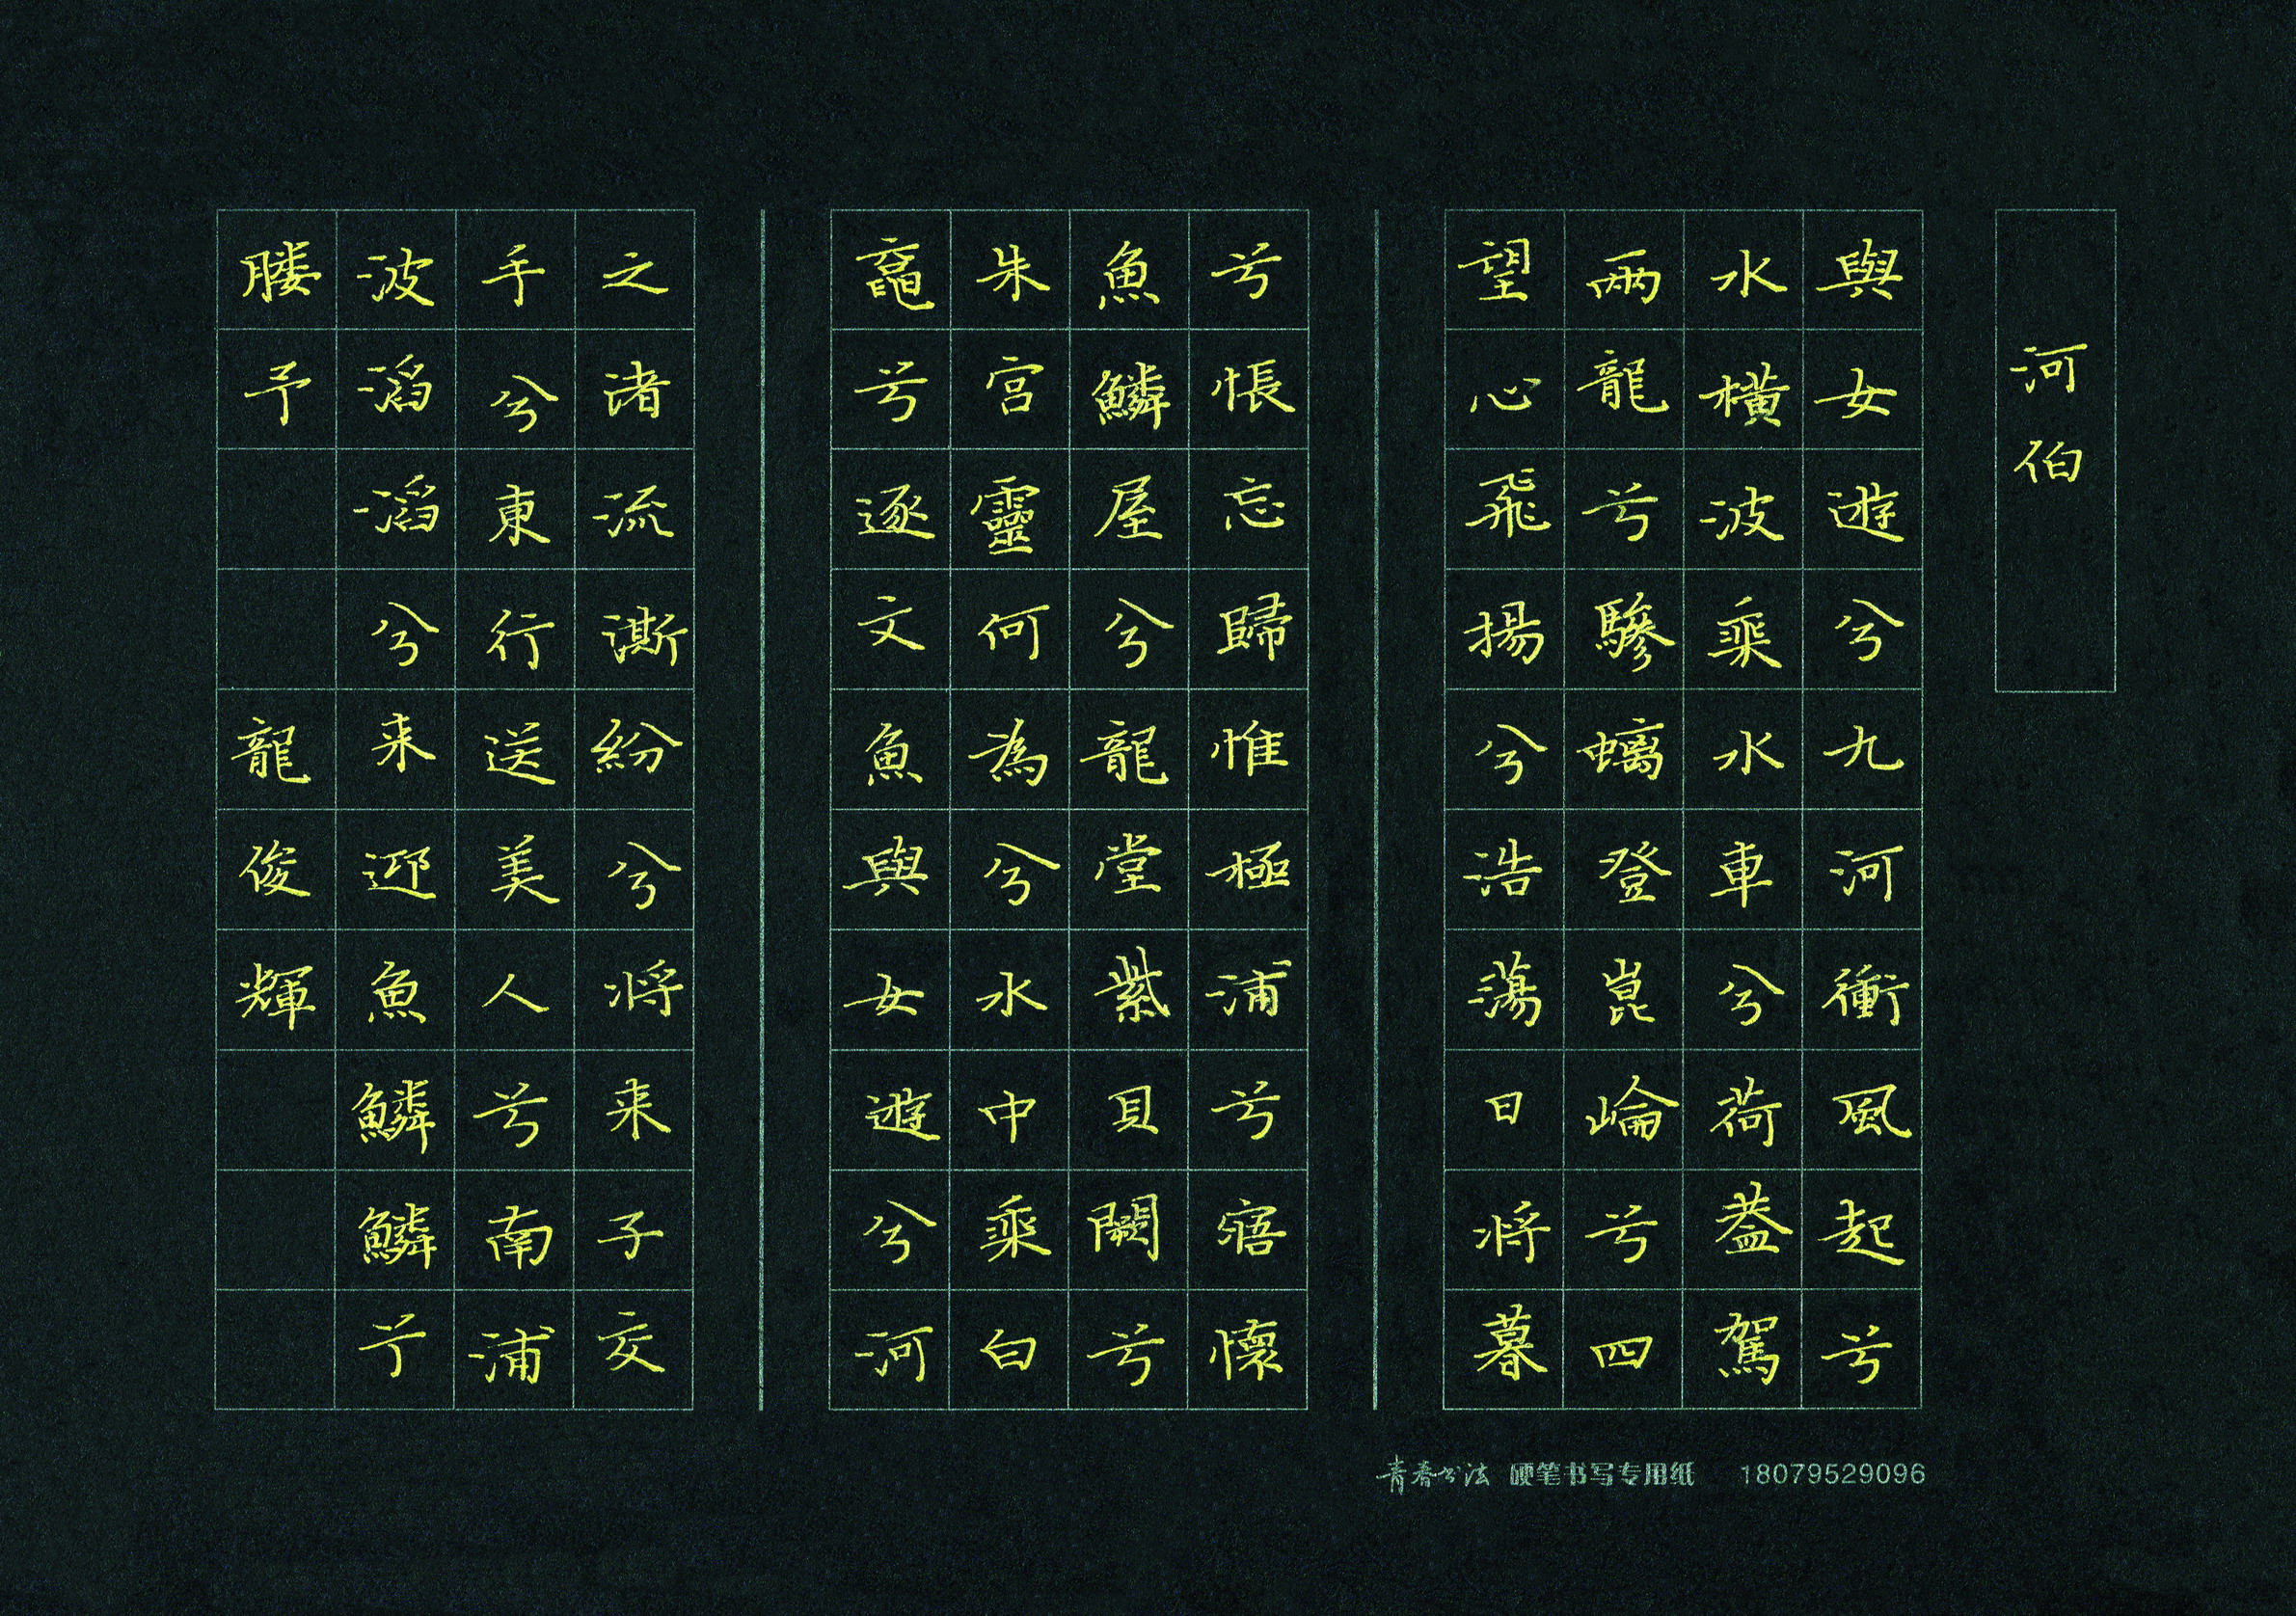 河伯
與女遊兮九河衝風起兮
水橫波乘水車兮荷蓋駕
兩龍兮驂螭登崑崘兮四
望心飛揚兮浩蕩日将暮
兮悵忘歸惟極浦兮寤懷
魚鱗屋兮龍堂紫貝闕兮
朱宮靈何為兮水中乘白
黿兮逐文魚與女遊兮河
之渚流澌紛兮将来子交
手兮東行送美人兮南浦
波滔滔兮来迎魚鱗鱗兮
媵予 龍俊輝
青春书法 硬笔书写专用纸 18079529096